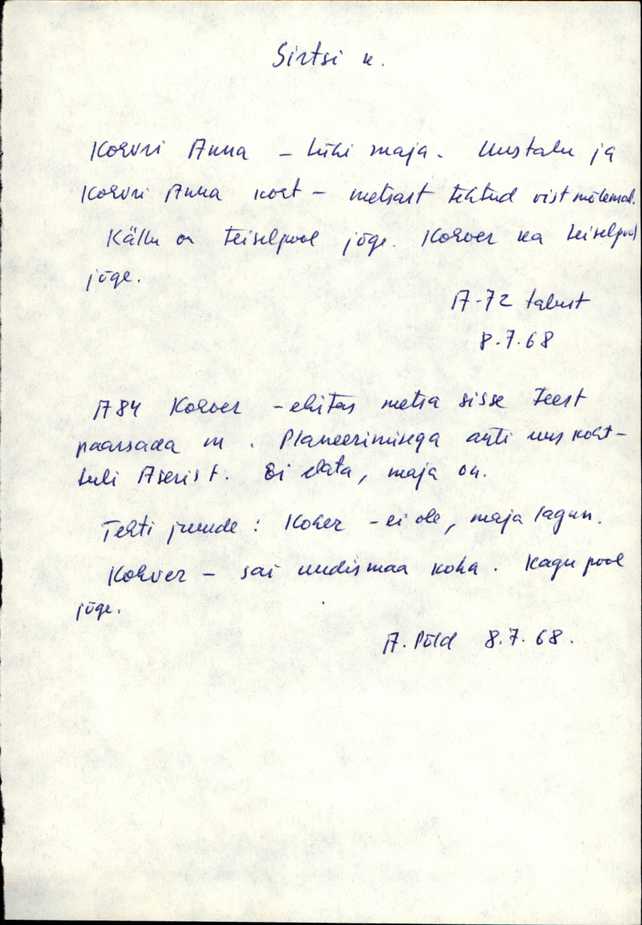 Sirtsi k.
Kohvri Anna – tühi maja. Uustalu ja
Kohvri Anna koht – metsast tehtud vist mõlemad.
Källu on teiselpool jõge. Kohver ka teiselpool
jõge.
A-72 talust
8.7.68
A84 Kohver – ehitas metsa sisse teest
paarsada m. Planeerimisega anti uus koht –
tuli Aserist. Ei elata, maja on.
Tehti juurde: Koher – ei ole, maja lagun.
Kohver – sai uudismaa koha. Kagu pool
jõge.
A. Põld 8.7.68.